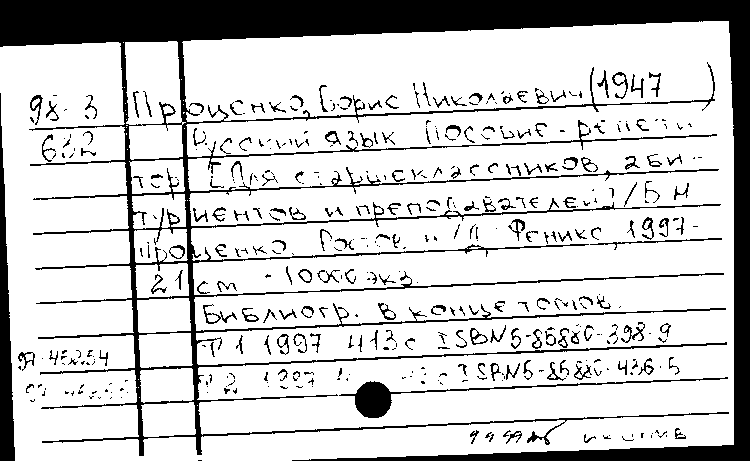 98-3 Проценко, Борис Николаевич (1947 )
632 Русский язык Пособие-репети
тор [Для старшеклассников, аби-
туриентов и преподавателей] / Б Н
Проценко. Ростов н/Д Феникс, 1997-
21 см - 10000 экз.
Библиогр. в конце томов.
Т 1 1997 413 с ISBN 5-85880-398-9
97-45254
Т 2 1997 с ISBN 5-85880-436-5